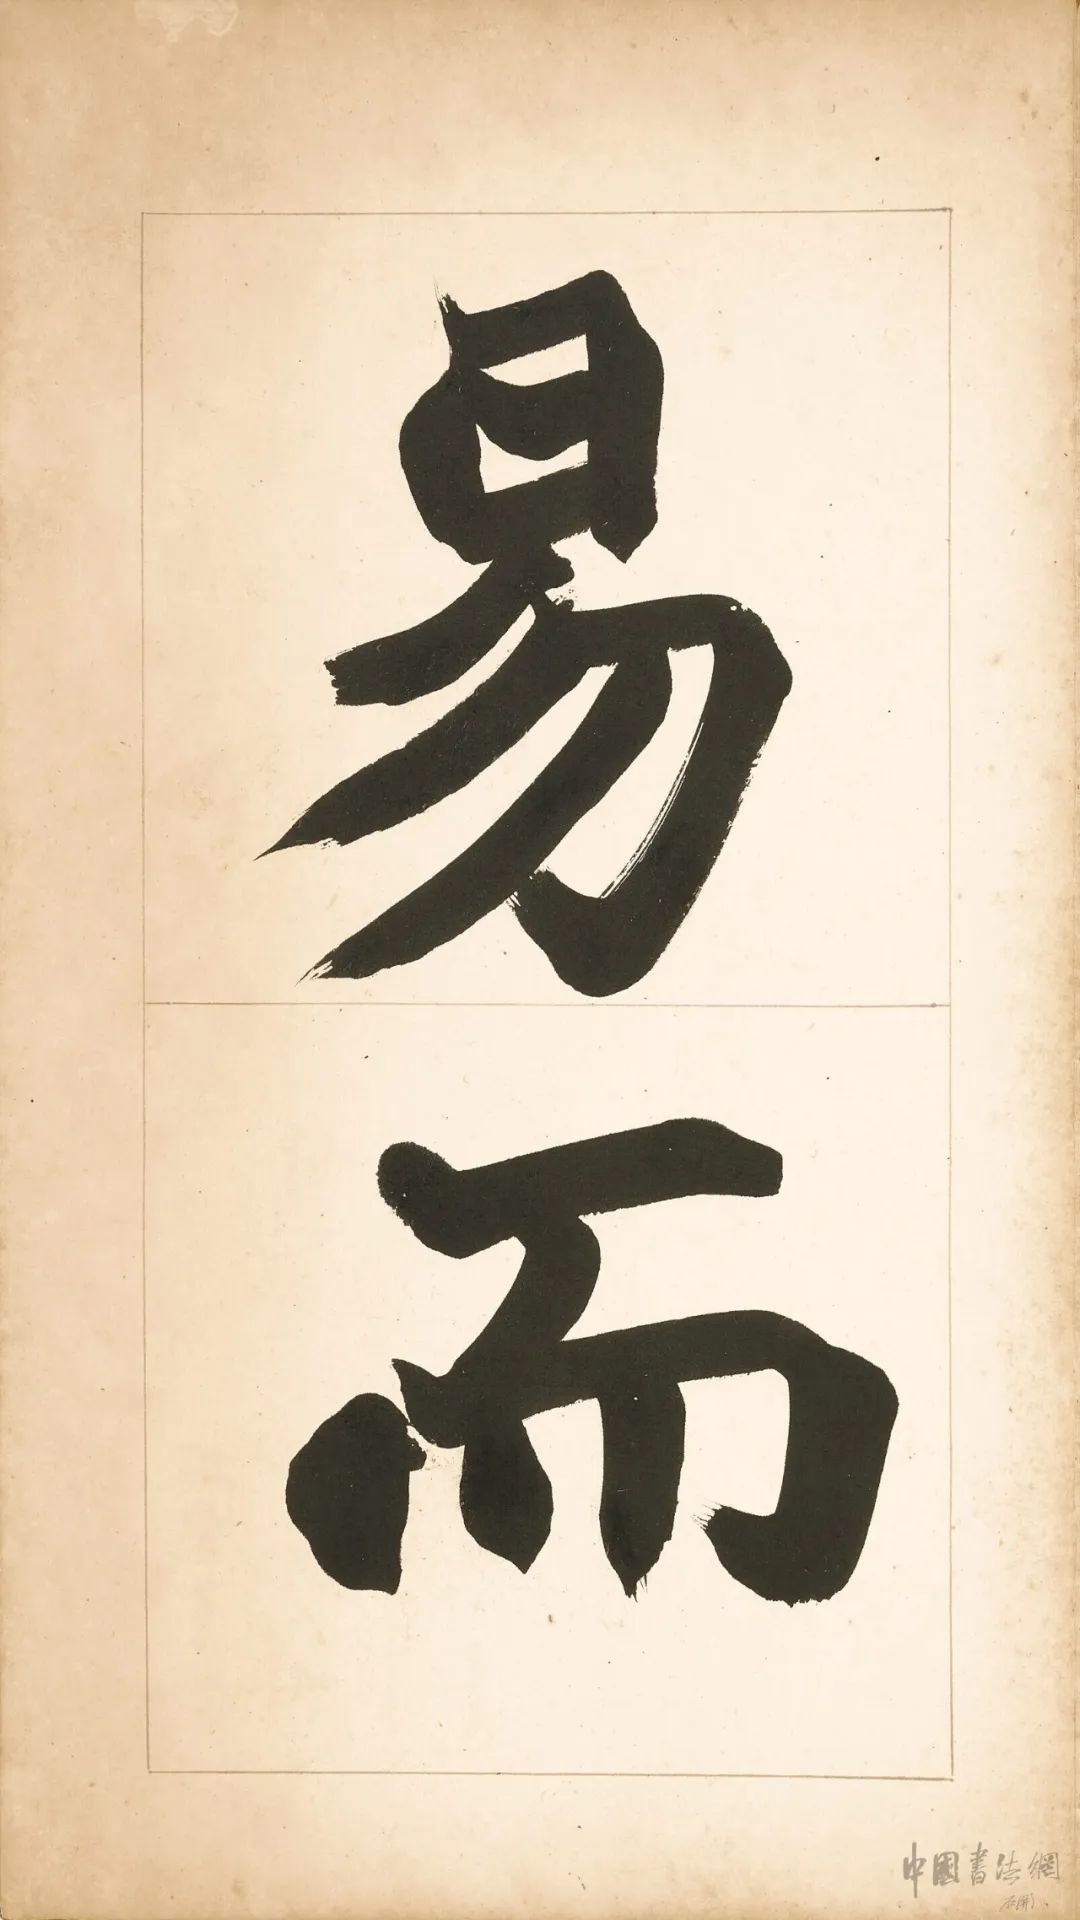 易
而
中國書法網